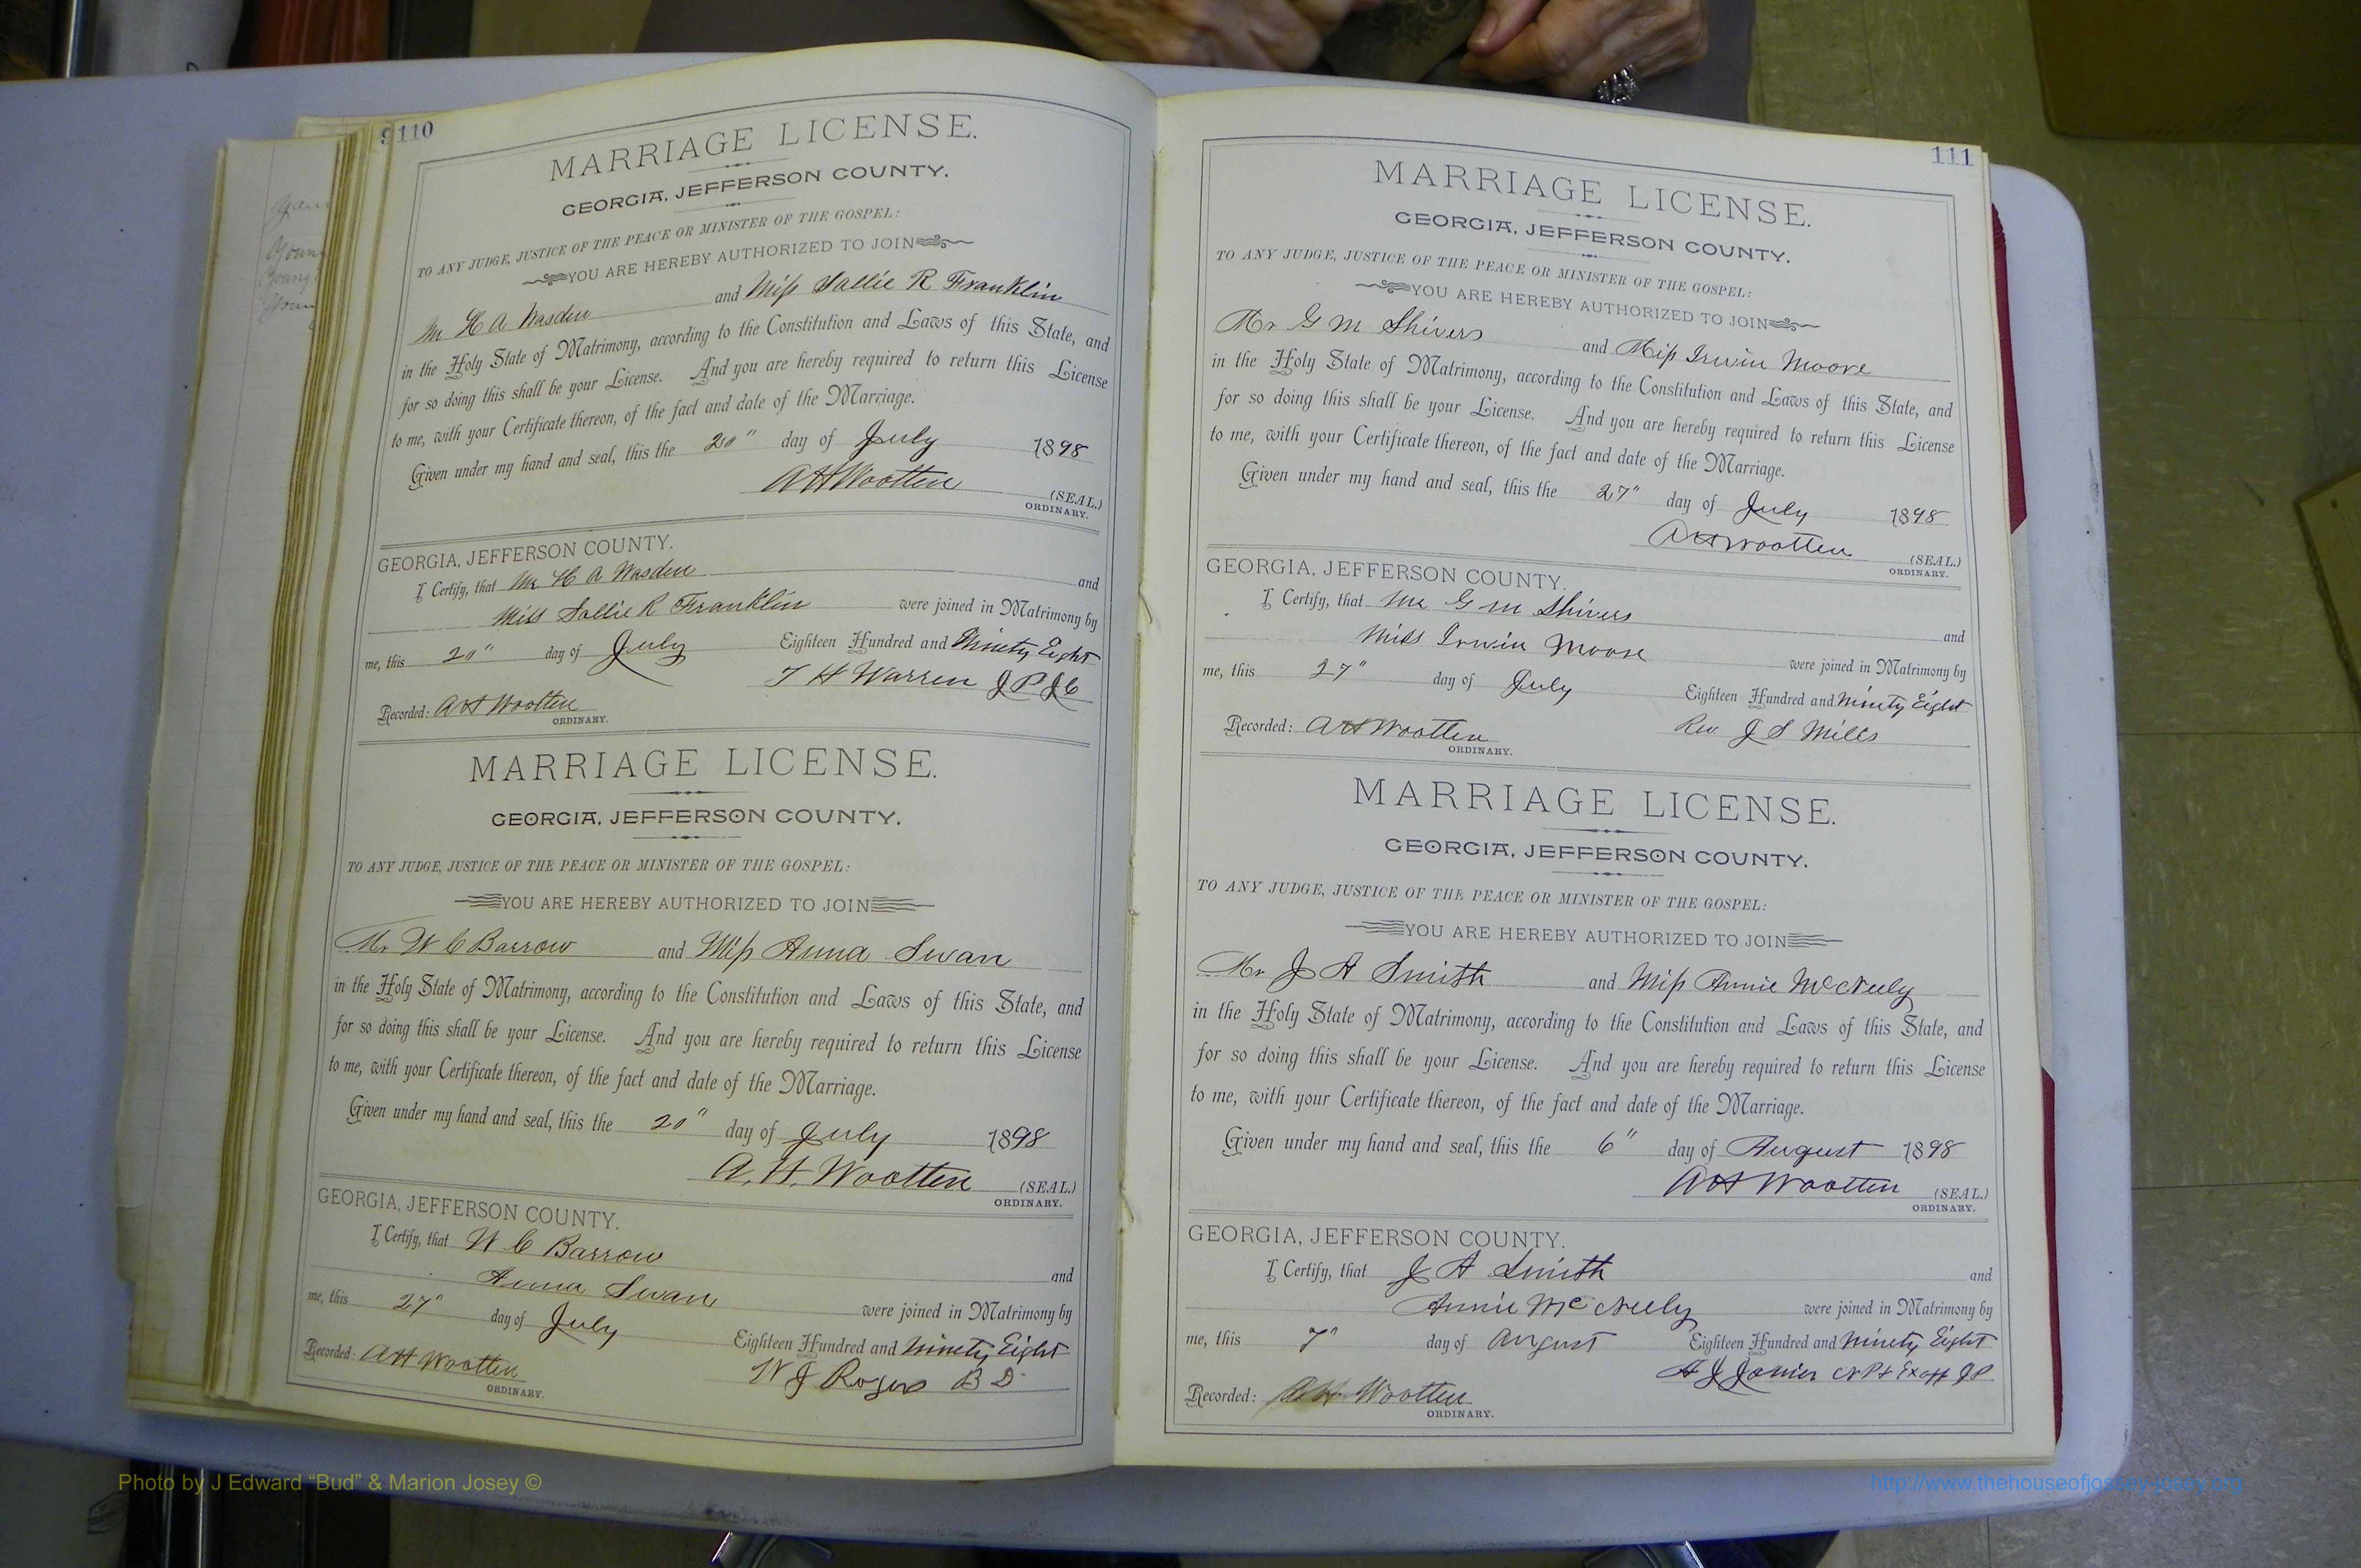 110
MARRIAGE LICENSE.
GEORGIA, JEFFERSON COUNTY.
TO ANY JUDGE, JUSTICE OF THE PEACE OR MINISTER OF THE GOSPEL:
YOU ARE HEREBY AUTHORIZED TO JOIN
Mr H A Wasden and Miss Sallie R Franklin
in the Holy State of Matrimony, according to the Constitution and Laws of this State, and
for so doing this shall be your License. And you are hereby required to return this License
to me, with your Certificate thereon, of the fact and date of the Marriage.
Given under my hand and seal, this the 20" day of July 1898
A H Wootten (SEAL.)
ORDINARY.
GEORGIA, JEFFERSON COUNTY.
I Certify, that Mr H A Wasden and
Miss Sallie R Franklin were joined in Matrimony by
me, this 20" day of July Eighteen Hundred and Ninety Eight
T H Warren J P J C
Recorded: A H Wootten
ORDINARY.
MARRIAGE LICENSE.
GEORGIA, JEFFERSON COUNTY.
TO ANY JUDGE, JUSTICE OF THE PEACE OR MINISTER OF THE GOSPEL:
YOU ARE HEREBY AUTHORIZED TO JOIN
Mr W C Barrow and Miss Anna Swan
in the Holy State of Matrimony, according to the Constitution and Laws of this State, and
for so doing this shall be your License. And you are hereby required to return this License
to me, with your Certificate thereon, of the fact and date of the Marriage.
Given under my hand and seal, this the 20" day of July 1898
A. H. Wootten (SEAL.)
ORDINARY.
GEORGIA, JEFFERSON COUNTY.
I Certify, that W C Barrow and
Anna Swan were joined in Matrimony by
me, this 27" day of July Eighteen Hundred and Ninety Eight
W J Rogers B D
Recorded: A H Wootten
ORDINARY.
111
MARRIAGE LICENSE.
GEORGIA, JEFFERSON COUNTY.
TO ANY JUDGE, JUSTICE OF THE PEACE OR MINISTER OF THE GOSPEL:
YOU ARE HEREBY AUTHORIZED TO JOIN
Mr G M Shivers and Miss Irwin Moore
in the Holy State of Matrimony, according to the Constitution and Laws of this State, and
for so doing this shall be your License. And you are hereby required to return this License
to me, with your Certificate thereon, of the fact and date of the Marriage.
Given under my hand and seal, this the 27" day of July 1898
A H Wootten (SEAL.)
ORDINARY.
GEORGIA, JEFFERSON COUNTY.
I Certify, that Mr G M Shivers and
Miss Irwin Moore were joined in Matrimony by
me, this 27" day of July Eighteen Hundred and Ninety Eight
Rev J S Mills
Recorded: A H Wootten
ORDINARY.
MARRIAGE LICENSE.
GEORGIA, JEFFERSON COUNTY.
TO ANY JUDGE, JUSTICE OF THE PEACE OR MINISTER OF THE GOSPEL:
YOU ARE HEREBY AUTHORIZED TO JOIN
Mr J A Smith and Miss Annie McNeely
in the Holy State of Matrimony, according to the Constitution and Laws of this State, and
for so doing this shall be your License. And you are hereby required to return this License
to me, with your Certificate thereon, of the fact and date of the Marriage.
Given under my hand and seal, this the 6" day of August 1898
A H Wootten (SEAL.)
ORDINARY.
GEORGIA, JEFFERSON COUNTY.
I Certify, that J A Smith and
Annie McNeely were joined in Matrimony by
me, this 7" day of August Eighteen Hundred and Ninety Eight
J N P & Exoff J P
Recorded: A H Wootten
ORDINARY.
Photo by J Edward “Bud” & Marion Josey ©
http://www.thehouseofjossey-josey.org